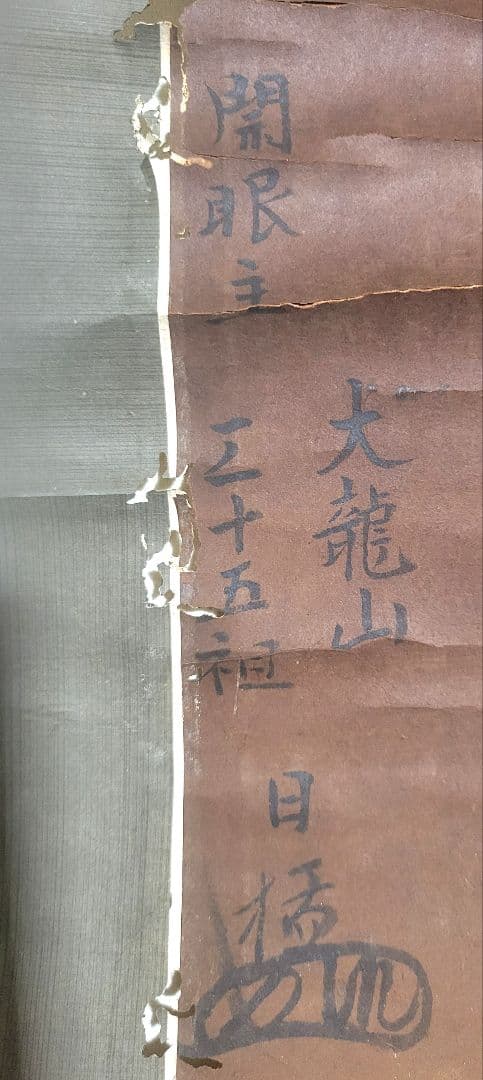 開眼主
大龍山
三十五祖
日